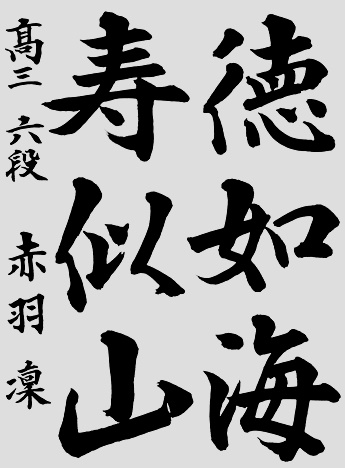 徳如海
寿似山
髙三 六段 赤羽 凜